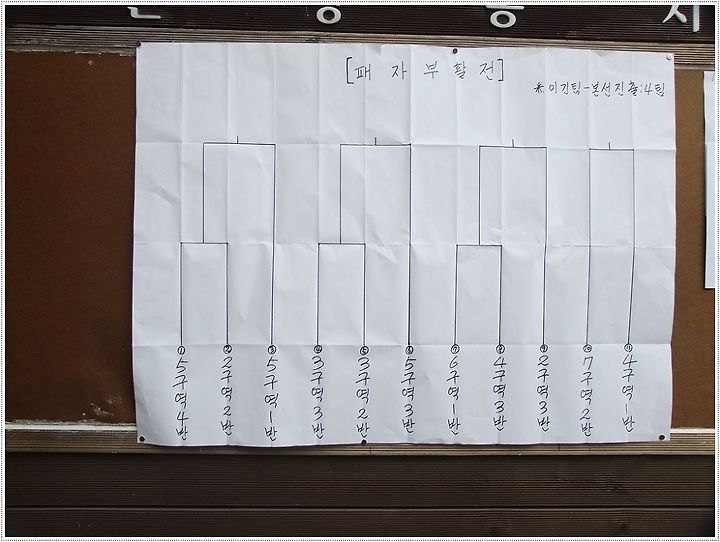 [패자부활전]
※이긴팀-본선진출:4팀
① 5구역4반
② 2구역2반
③ 5구역1반
④ 3구역3반
⑤ 3구역2반
⑥ 5구역3반
⑦ 6구역1반
⑧ 4구역3반
⑨ 2구역3반
⑩ 7구역2반
⑪ 4구역1반